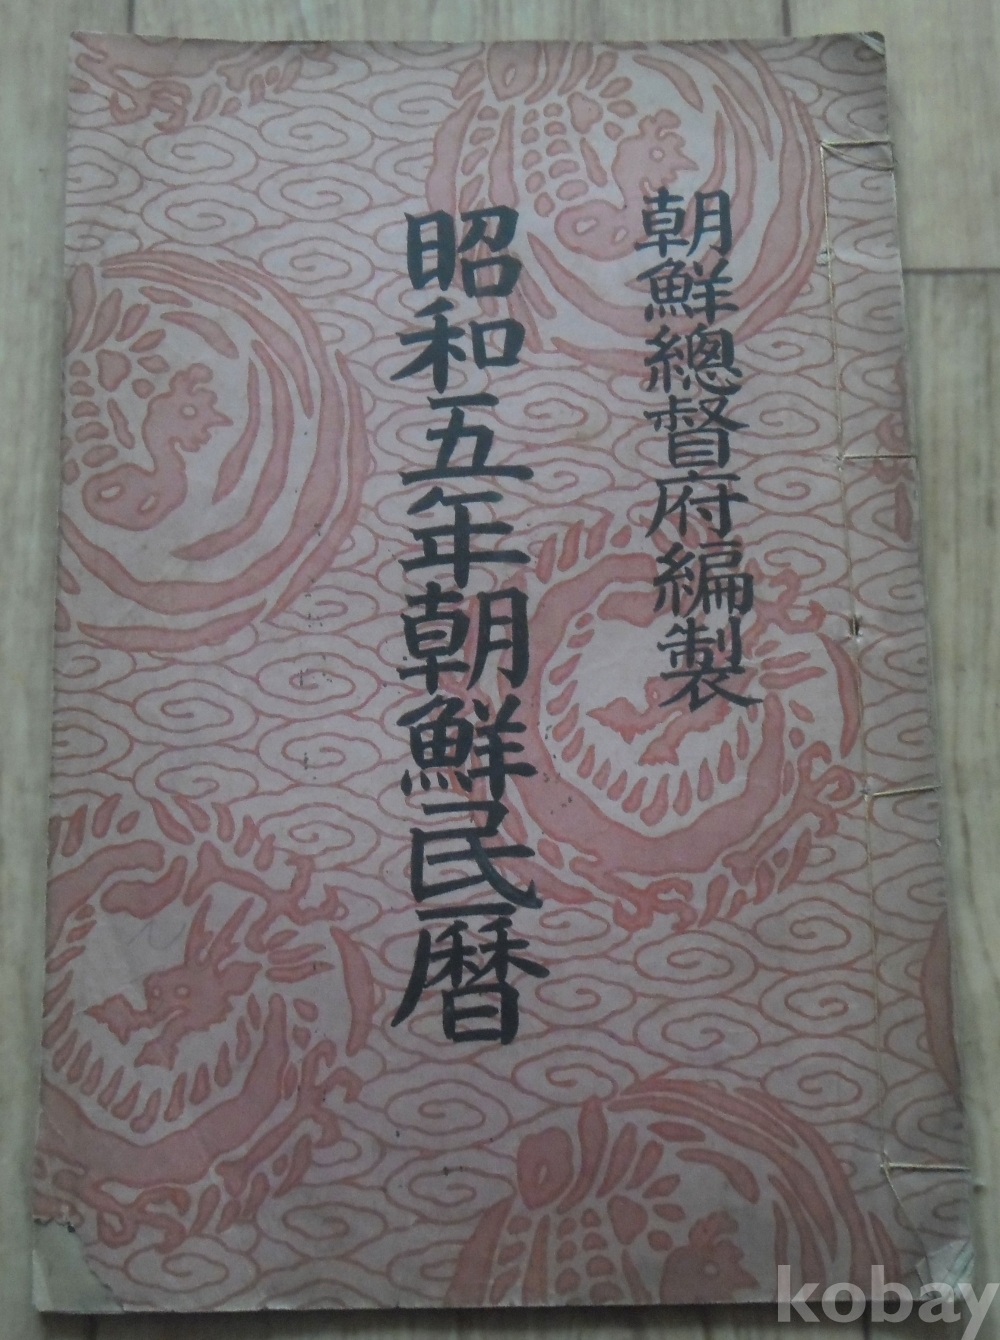 朝鮮總督府編製
昭和五年朝鮮民曆
kobay